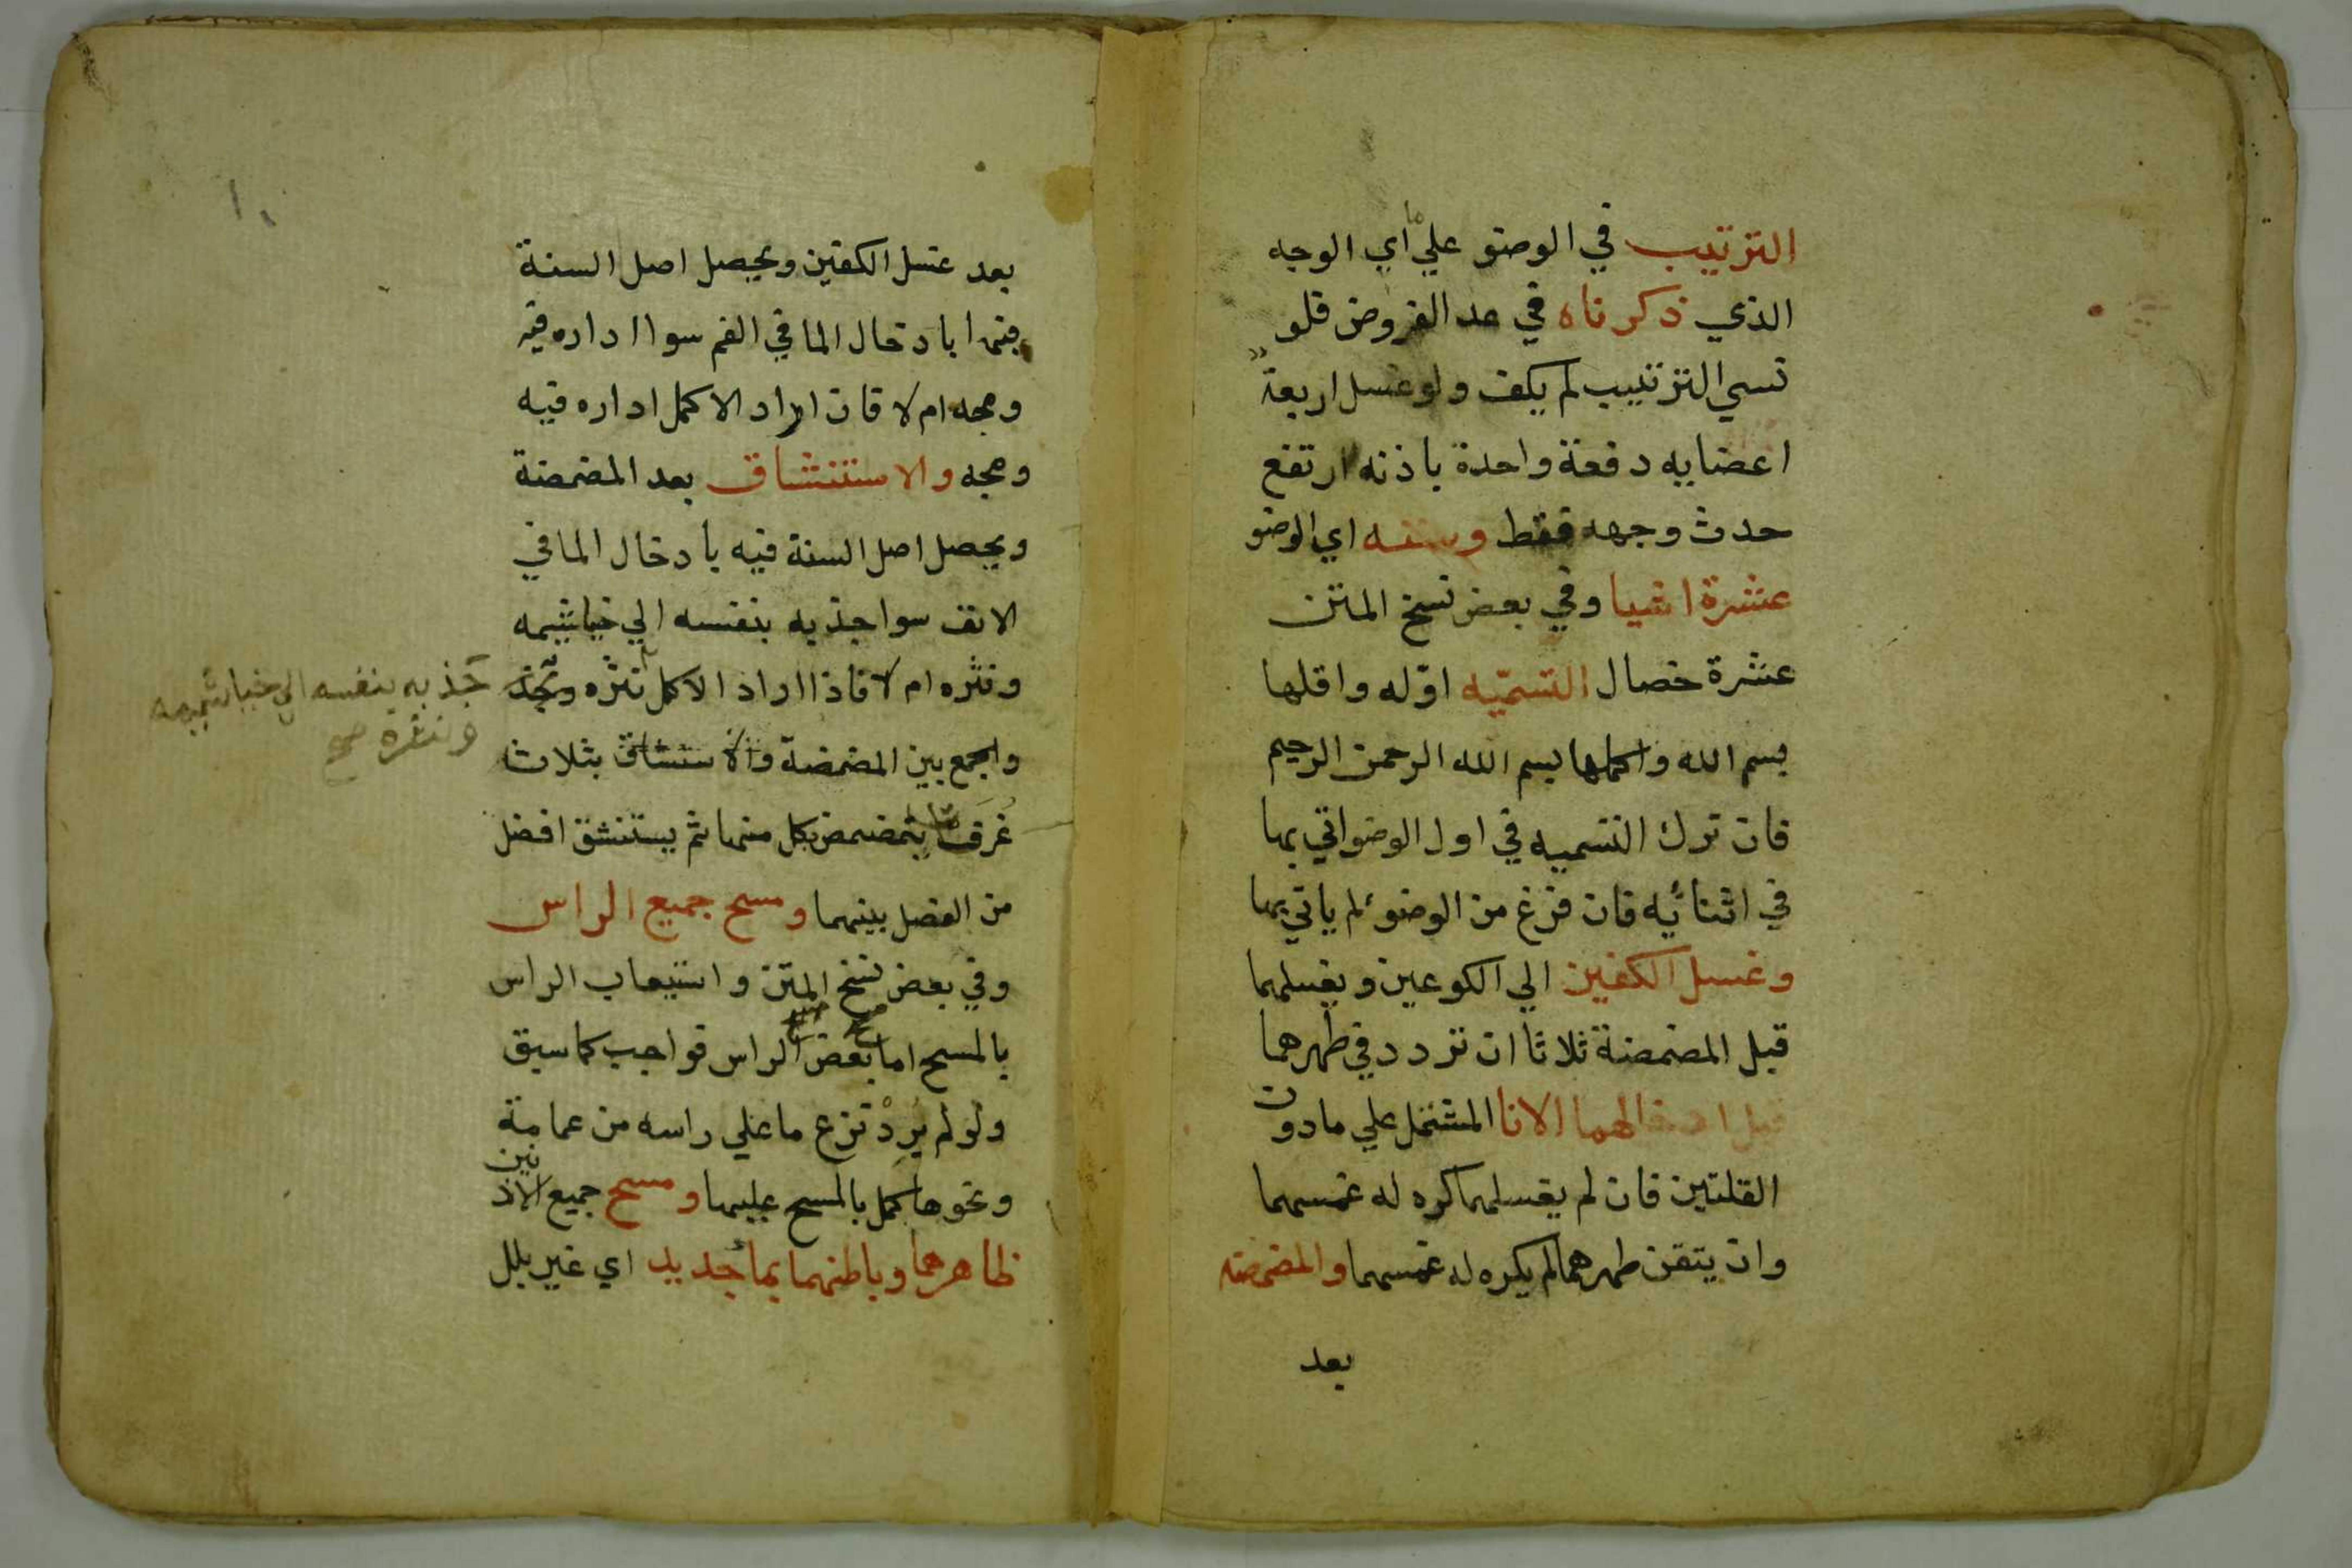 الترتيب في الوضو علي ما اي الوجه
الذي ذكرناه في عد الفروض فلو
نسي الترتيب لم يكف ولو غسل اربعة
اعضايه دفعة واحدة باذنه ارتفع
حدث وجهه فقط وسننه اي الوضو
عشرة اشيا وفي بعض نسخ المتن
عشرة خصال التسميه اوله واقلها
بسم الله واكملها بسم الله الرحمن الرحيم
فان ترك التسميه في اول الوضو اتي بها
في اثنائيه فان فرغ من الوضوء لم ياتي بها
وغسل الكفين الي الكوعين ويغسلهما
قبل المضمضة ثلاثا ان تردد في طهرهما
قبل ادخالهما الانا المشتمل علي مادون
القلتين فان لم يغسلهما كره له غمسهما
وان يتقن طهرهما لم يكره له غمسهما والمضمضه
بعد
١٠
بعد غسل الكفين ويحصل اصل السنة
فيها بادخال الما في الفم سوا اداره فيه
ومجه ام لا فان اراد الاكمل اداره فيه
ومجه والاستنشاق بعد المضمضة
ويحصل اصل السنة فيه بادخال الما في
الانف سوا جذبه بنفسه الي خياشيمه
ونثره ام لا فاذا اراد الاكمل نثره
جذبه بنفسه الي خياشيمه
ونثره صح
والجمع بين المضمضة والاستنشاق بثلاث
غرف يتمضمض بكل منها ثم يستنشق افضل
من الفصل بينهما ومسح جميع الراس
وفي بعض نسخ المتن واستيعاب الراس
بالمسح اما بعض الراس فواجب كما سبق
ولو لم يرد نزع ما علي راسه من عمامة
ونحوها كمل بالمسح عليها ومسح جميع الاذنين
ظاهرهما وباطنهما بما جديد اي غير بلل